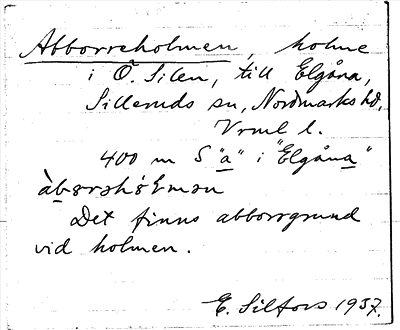 Abborreholmen, holme
i Ö. Silen, till Elgåna,
Silleruds sn, Nordmarks hd,
Vrml l.
400 m S "a" i "Elgåna"
àbɵrəhɵ̀lmən
Det finns abborrgrund
vid holmen.
E. Silfors 1937.